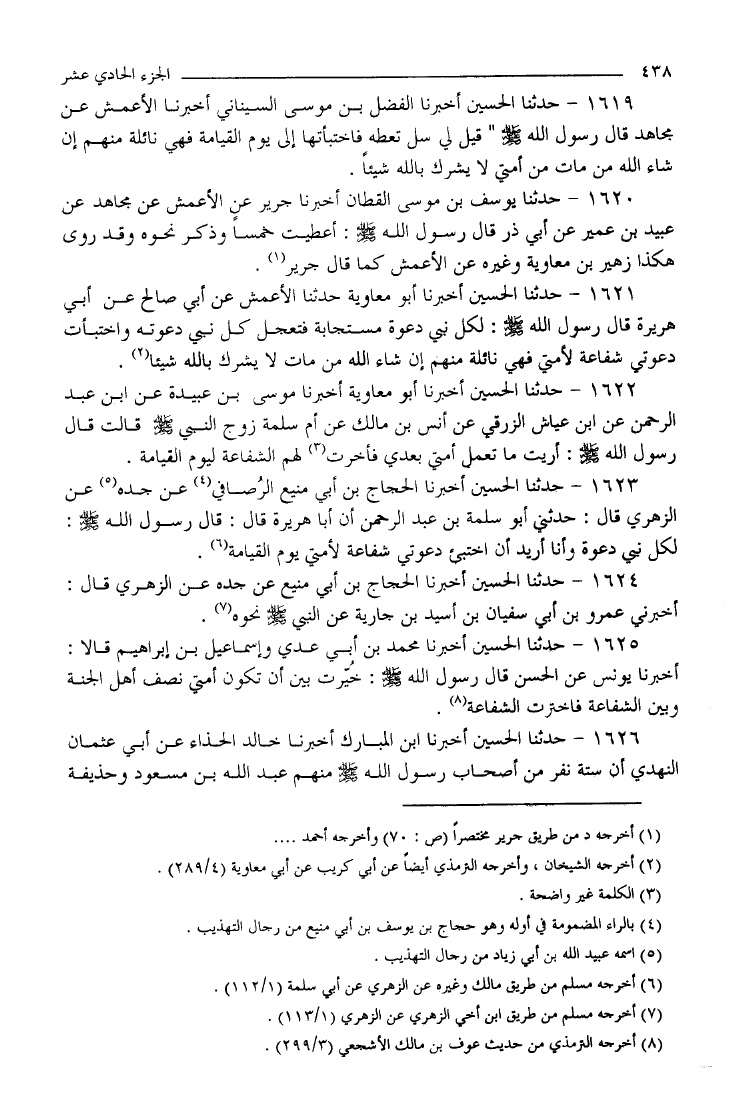 ٤٣٨ الجزء الحادي عشر
١٦١٩ - حدثنا الحسين أخبرنا الفضل بن موسى السيناني أخبرنا الأعمش عن
مجاهد قال رسول الله ﷺ " قيل لي سل تعطه فاختبأتها إلى يوم القيامة فهي نائلة منهم إن
شاء الله من مات من أمتي لا يشرك بالله شيئاً .
١٦٢٠ - حدثنا يوسف بن موسى القطان أخبرنا جرير عن الأعمش عن مجاهد عن
عبيد بن عمير عن أبي ذر قال رسول الله ﷺ : أعطيت خمساً وذكر نحوه وقد روى
هكذا زهير بن معاوية وغيره عن الأعمش كما قال جرير(١) .
١٦٢١ - حدثنا الحسين أخبرنا أبو معاوية حدثنا الأعمش عن أبي صالح عن أبي
هريرة قال رسول الله ﷺ : لكل نبي دعوة مستجابة فتعجل كل نبي دعوته واختبأت
دعوتي شفاعة لأمتي فهي نائلة منهم إن شاء الله من مات لا يشرك بالله شيئا(٢) .
١٦٢٢ - حدثنا الحسين أخبرنا أبو معاوية أخبرنا موسى بن عبيدة عن ابن عبد
الرحمن عن ابن عياش الزرقي عن أنس بن مالك عن أم سلمة زوج النبي ﷺ قالت قال
رسول الله ﷺ : أريت ما تعمل أمتي بعدي فأخرت(٣) لهم الشفاعة ليوم القيامة .
١٦٢٣ - حدثنا الحسين أخبرنا الحجاج بن أبي منيع الرُصافي(٤) عن جده(٥) عن
الزهري قال : حدثني أبو سلمة بن عبد الرحمن أن أبا هريرة قال : قال رسول الله ﷺ :
لكل نبي دعوة وأنا أريد أن اختبئ دعوتي شفاعة لأمتي يوم القيامة(٦) .
١٦٢٤ - حدثنا الحسين أخبرنا الحجاج بن أبي منيع عن جده عن الزهري قال :
أخبرني عمرو بن أبي سفيان بن أسيد بن جارية عن النبي ﷺ نحوه(٧) .
١٦٢٥ - حدثنا الحسين أخبرنا محمد بن أبي عدي وإسماعيل بن إبراهيم قالا :
أخبرنا يونس عن الحسن قال رسول الله ﷺ : خُيِّرت بين أن تكون أمتي نصف أهل الجنة
وبين الشفاعة فاخترت الشفاعة(٨) .
١٦٢٦ - حدثنا الحسين أخبرنا ابن المبارك أخبرنا خالد الحذاء عن أبي عثمان
النهدي أن ستة نفر من أصحاب رسول الله ﷺ منهم عبد الله بن مسعود وحذيفة
(١) أخرجه د من طريق جرير مختصراً (ص : ٧٠) وأخرجه أحمد ....
(٢) أخرجه الشيخان ، وأخرجه الترمذي أيضاً عن أبي كريب عن أبي معاوية (٢٨٩/٤) .
(٣) الكلمة غير واضحة .
(٤) بالراء المضمومة في أوله وهو حجاج بن يوسف بن أبي منيع من رجال التهذيب .
(٥) اسمه عبيد الله بن أبي زياد من رجال التهذيب .
(٦) أخرجه مسلم من طريق مالك وغيره عن الزهري عن أبي سلمة (١١٢/١) .
(٧) أخرجه مسلم من طريق ابن أخي الزهري عن الزهري (١١٣/١) .
(٨) أخرجه الترمذي من حديث عوف بن مالك الأشجعي (٢٩٩/٣) .